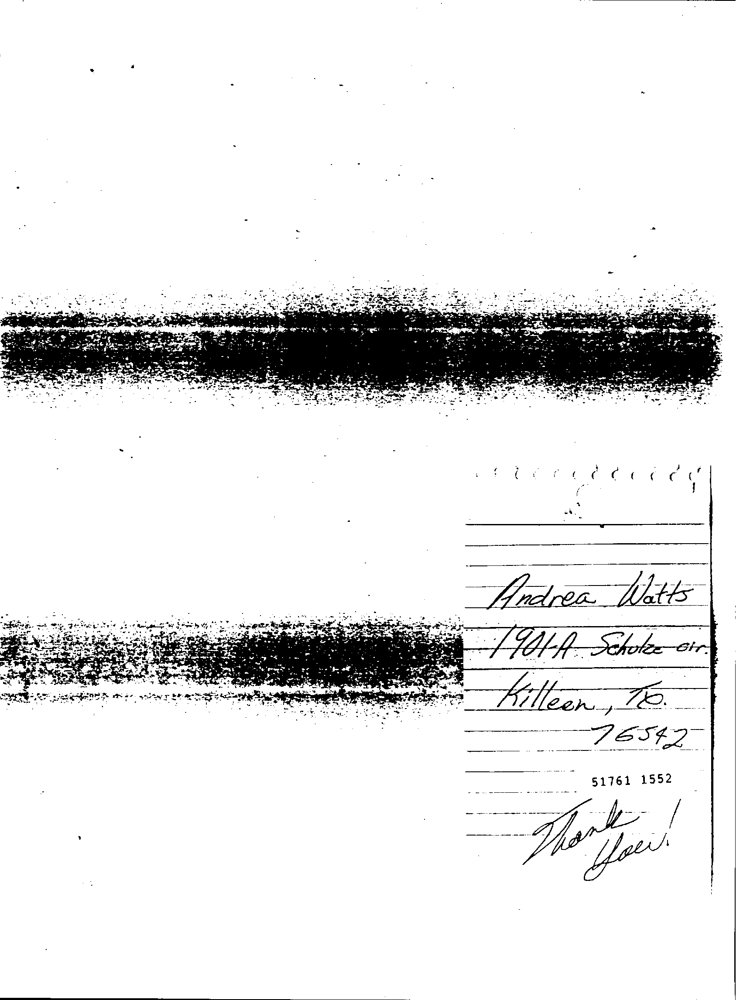 Andrea Watts
1901-A Schulze cir.
Killeen, Tx.
76542
51761 1552
Thank
You!